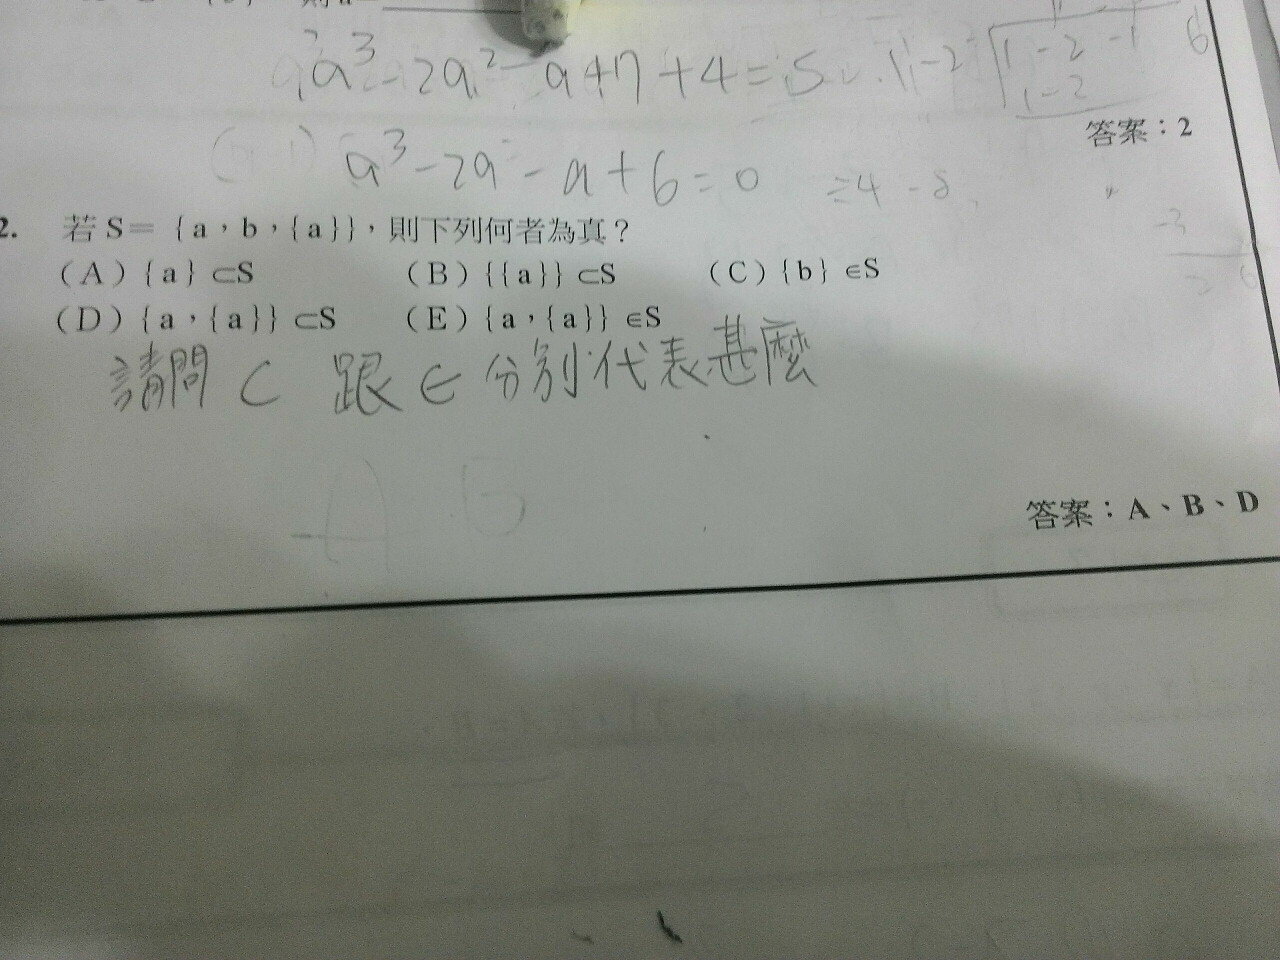 則a=
a³-2a²-a+7+4=5
1-2 1-2-1 6
1-2
答案：2
a³-2a-a+6=0
2. 若S={a，b，{a}}，則下列何者為真？
(A){a}⊂S (B){{a}}⊂S (C){b}∈S
(D){a，{a}}⊂S (E){a，{a}}∈S
請問⊂跟∈分別代表甚麼
答案：A、B、D